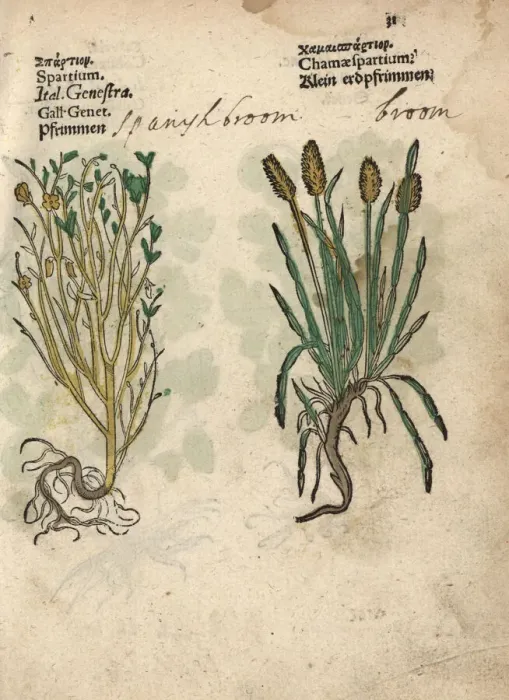 31
Σπάρτιον.
Spartium.
Ital. Genestra.
Gall. Genet.
Pfrimmen
spanish broom
Χαμαισπάρτιον.
Chamæspartium;
Klein erdpfrimmen;
broom